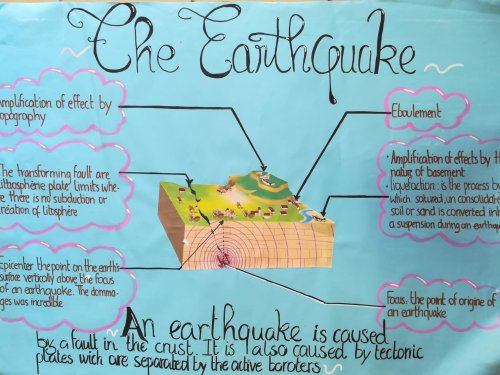 The Earthquake
Amplification of effect by
topography
Eboulement
The transforming fault are
lithospheric plate limits whe-
re there is no subduction or
création of litosphère
• Amplification of effects by the
nature of basement
• liquefaction: is the process by
which saturated, unconsolidated
soil or sand is converted into
a suspension during an earthquake
Epicenter the point on the earth's
surface vertically above the focus
of an earthquake. The damma-
ges was incredible
Focus: the point of origine of
an earthquake
An earthquake is caused
by a fault in the crust. It is also caused by tectonic
plates wich are separated by the active